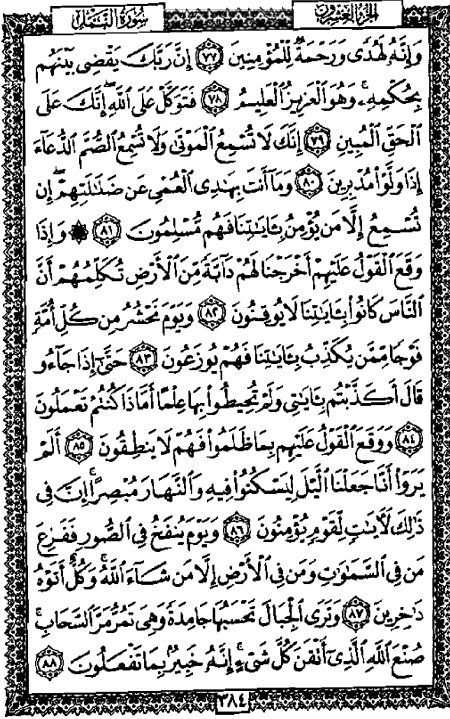 الجزء العشرون
سورة النمل
وَإِنَّهُ لَهُدًى وَرَحْمَةٌ لِّلْمُؤْمِنِينَ ٧٧ إِنَّ رَبَّكَ يَقْضِى بَيْنَهُم
بِحُكْمِهِۦ وَهُوَ ٱلْعَزِيزُ ٱلْعَلِيمُ ٧٨ فَتَوَكَّلْ عَلَى ٱللَّهِ إِنَّكَ عَلَى
ٱلْحَقِّ ٱلْمُبِينِ ٧٩ إِنَّكَ لَا تُسْمِعُ ٱلْمَوْتَىٰ وَلَا تُسْمِعُ ٱلصُّمَّ ٱلدُّعَآءَ
إِذَا وَلَّوْا۟ مُدْبِرِينَ ٨٠ وَمَآ أَنتَ بِهَٰدِى ٱلْعُمْىِ عَن ضَلَٰلَتِهِمْ إِن
تُسْمِعُ إِلَّا مَن يُؤْمِنُ بِـَٔايَٰتِنَا فَهُم مُّسْلِمُونَ ٨١ ۞ وَإِذَا
وَقَعَ ٱلْقَوْلُ عَلَيْهِمْ أَخْرَجْنَا لَهُمْ دَآبَّةً مِّنَ ٱلْأَرْضِ تُكَلِّمُهُمْ أَنَّ
ٱلنَّاسَ كَانُوا۟ بِـَٔايَٰتِنَا لَا يُوقِنُونَ ٨٢ وَيَوْمَ نَحْشُرُ مِن كُلِّ أُمَّةٍ
فَوْجًا مِّمَّن يُكَذِّبُ بِـَٔايَٰتِنَا فَهُمْ يُوزَعُونَ ٨٣ حَتَّىٰٓ إِذَا جَآءُو
قَالَ أَكَذَّبْتُم بِـَٔايَٰتِى وَلَمْ تُحِيطُوا۟ بِهَا عِلْمًا أَمَّاذَا كُنتُمْ تَعْمَلُونَ
٨٤ وَوَقَعَ ٱلْقَوْلُ عَلَيْهِم بِمَا ظَلَمُوا۟ فَهُمْ لَا يَنطِقُونَ ٨٥ أَلَمْ
يَرَوْا۟ أَنَّا جَعَلْنَا ٱلَّيْلَ لِيَسْكُنُوا۟ فِيهِ وَٱلنَّهَارَ مُبْصِرًا إِنَّ فِى
ذَٰلِكَ لَـَٔايَٰتٍ لِّقَوْمٍ يُؤْمِنُونَ ٨٦ وَيَوْمَ يُنفَخُ فِى ٱلصُّورِ فَفَزِعَ
مَن فِى ٱلسَّمَٰوَٰتِ وَمَن فِى ٱلْأَرْضِ إِلَّا مَن شَآءَ ٱللَّهُ وَكُلٌّ أَتَوْهُ
دَٰخِرِينَ ٨٧ وَتَرَى ٱلْجِبَالَ تَحْسَبُهَا جَامِدَةً وَهِىَ تَمُرُّ مَرَّ ٱلسَّحَابِ
صُنْعَ ٱللَّهِ ٱلَّذِىٓ أَتْقَنَ كُلَّ شَىْءٍ إِنَّهُۥ خَبِيرٌۢ بِمَا تَفْعَلُونَ ٨٨
٣٨٤